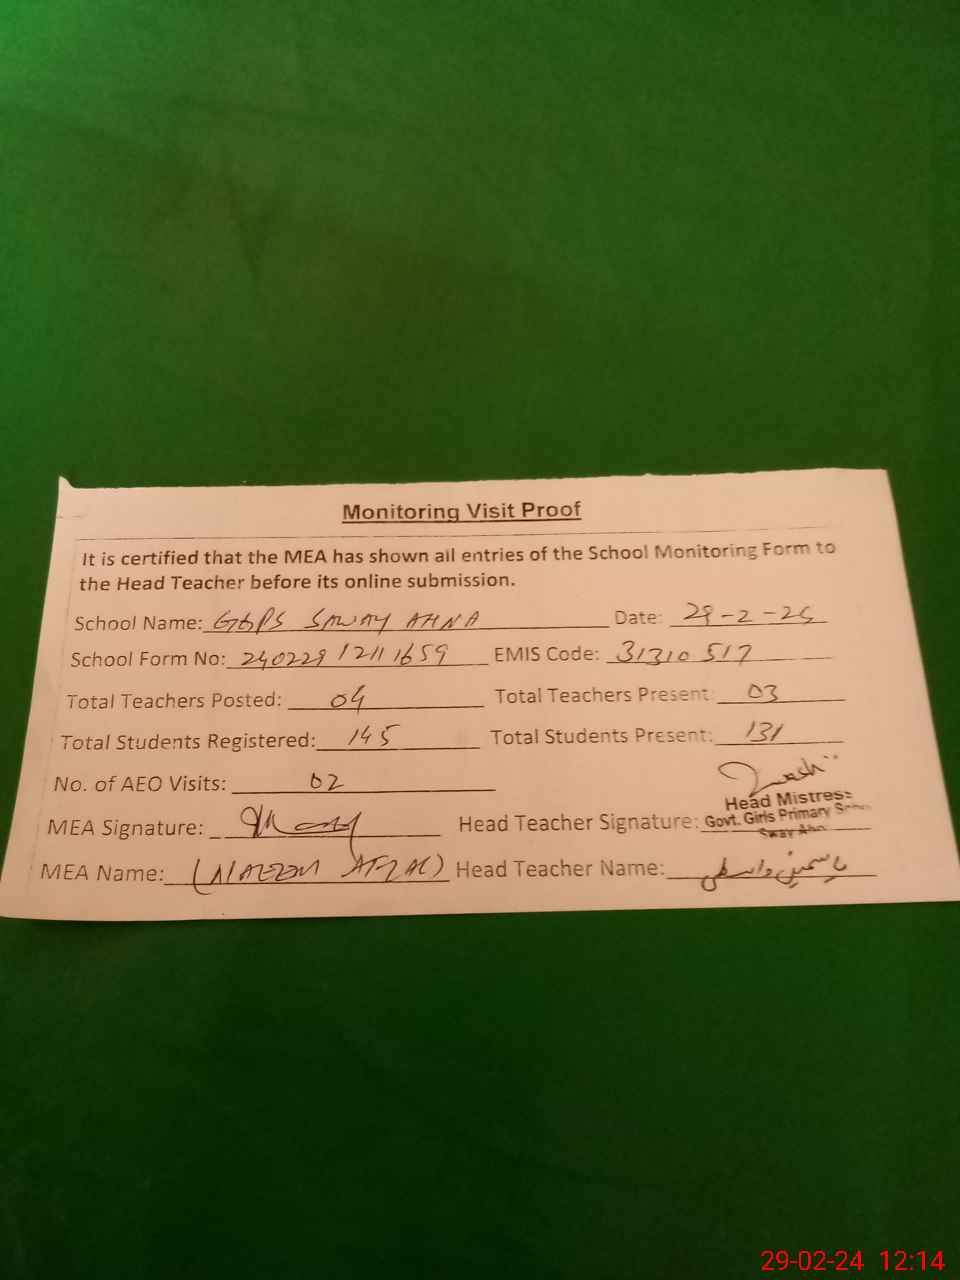 Monitoring Visit Proof
It is certified that the MEA has shown all entries of the School Monitoring Form to
the Head Teacher before its online submission.
School Name: GGPS SAWAY AHNA Date: 29-2-24
School Form No: 240229 12111659 EMIS Code: 31310517
Total Teachers Posted: 04 Total Teachers Present: 03
Total Students Registered: 145 Total Students Present: 131
No. of AEO Visits: 02
Head Mistress
MEA Signature: Head Teacher Signature: Govt. Girls Primary
Sway Ahna
MEA Name: (NAEEM AFZAL) Head Teacher Name: یاسمین واسطی
29-02-24 12:14